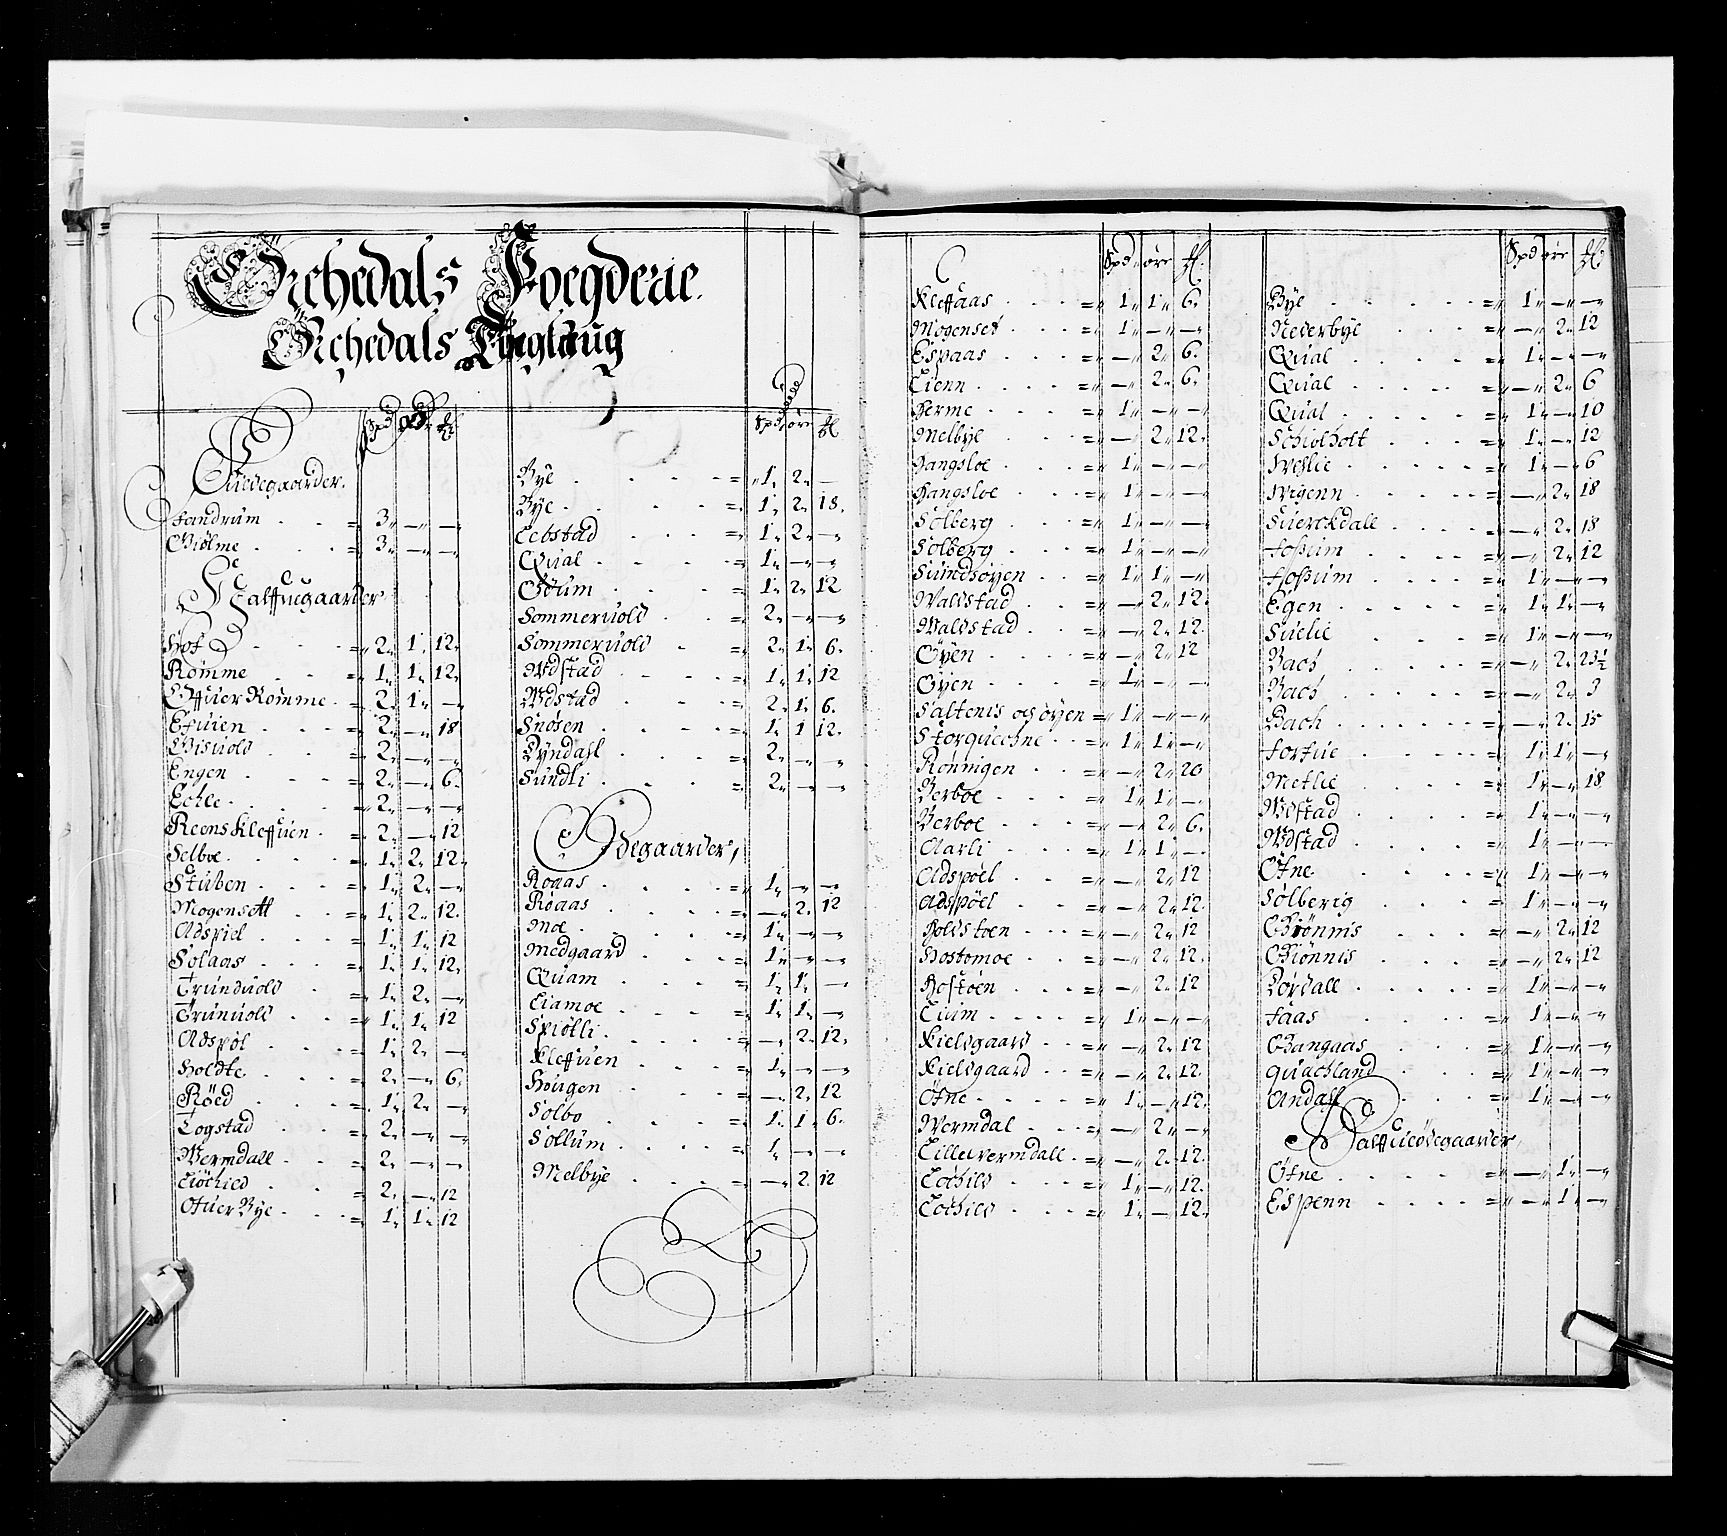 Orchedals Foegderie.
Orchedals Tinglaug
Spd ort ß
Fuldegaarder.
Fandrum = 3 — —
Giølme = 3 — —
Halffuegaarder
Hof = 2 1 12
Romme = 1 1 12
Øffuer Romme = 2 1 —
Efuien = 2 — 18
Gisuold = 2 — —
Engen = 2 — 6
Echle = 2 — —
Reens Kleffuen = 2 — 12
Selboe = 1 2 12
Stuben = 1 2 —
Mogensett = 1 2 12
Adspiel = 1 1 12
Solaas = 1 1 12
Trunduold = 1 2 —
Trunuold = 1 1 12
Adspøl = 1 2 —
Holdte = 2 — 6
Röed = 1 2 —
Togstad = 2 — —
Wermdall = 2 — —
= 2 — 12
Ofuer Bye = 1 1 12
Spd ort ß
Bye = 1 2 —
Bye = 1 2 18
Eebstad = 1 2 —
Qual = 1 — —
= 1 2 12
Sommeruold = 2 — —
Sommeruold = 2 1 6
Wdstad = 1 1 12
Wdstad = 2 1 6
Snøsen = 1 1 12
Dyndall = 2 — —
Sundli = 2 — —
Ødegaarder,
Roaas = 1 — —
Roaas = — 2 12
Moe = 1 — —
Medgaard = 1 — —
Quam = 1 1 —
Eiamoe = 1 1 —
Spiøtli = — 2 12
Kleffuen = 1 — —
Hougen = — 2 12
Solbo = 1 1 6
Sollum = 1 — —
Melbye = — 2 12
Spd ort ß
Kleffaas = 1 1 6
Mogenset = 1 — —
Espaas = — 2 6
Lienn = — 2 6
Herme = 1 — —
Melbye = — 2 12
Hangsloe = 1 — —
Hangsloe = 1 — —
Sølberg = 1 — —
Sølberg = 1 — —
Sundsøyen = 1 1 —
Waldstad = — 2 12
Waldstad = — 2 12
Öyen = — 2 12
Öyen = 1 — —
Saltenis og øyen = 1 — —
= 1 1 —
Ronnigen = — 2 20
Berboe = 1 1 —
Berboe = — 2 6
Aarli = 1 1 —
Adspoel = — 2 12
Adspöel = — 2 12
Holdstoen = — 2 12
Hostomoe = — 2 12
Hostöen = — 2 12
= 1 — —
Kielsgaard = — 2 12
Kielsgaard = — 2 12
Ötne = 1 — 12
Wormdal = — 2 —
Lillewermdall = — 2 12
= 1 — 12
= 1 — 12
Spd ort ß
Bye = 1 — —
Nederbye = — 2 12
Qual = 1 — —
Qual = — 2 6
Qual = 1 — 10
Schiølholt = 1 — 12
Weslie = 1 — 6
Wigenn = — 2 18
Suerckdall = — 2 18
Foßum = — 2 12
Foßum = 1 — —
Egen = 1 1 —
Suelie = 1 — —
Bach = — 2 23½
Bach = — 2 3
Bach = — 2 15
Forfue = 1 1 —
Metlie = 1 — 18
Wdstad = 1 — —
Wdstad = 1 — —
Ötne = 1 — —
Sølberig = 1 — —
Grönnis = — 2 12
Giønnis = — 2 12
Dørdall = 1 — —
Faas = 1 — —
Gangaas = 1 — —
Quachland = 1 — —
Andall = 1 — —
Halffueödegaarder,
Ötne = — 1 —
Espenn = — 1 —